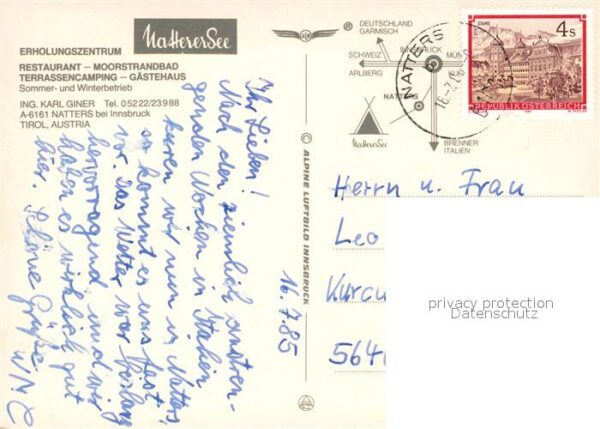 NattererSee
ERHOLUNGSZENTRUM
RESTAURANT – MOORSTRANDBAD
TERRASSENCAMPING – GÄSTEHAUS
Sommer- und Winterbetrieb
ING. KARL GINER Tel. 0 52 22 / 23 9 88
A-6161 NATTERS bei Innsbruck
TIROL, AUSTRIA
Ihr Lieben!
Nach den ziemlich anstren-
genden Wochen in Italien
kuren wir nun in Natters
so kommt es uns fast
vor. Das Wetter war bislang
hervorragend und wir
haben es wirklich gut
hier. Schöne Grüße
16.7.85
ALPINE LUFTBILD INNSBRUCK
DEUTSCHLAND
GARMISCH
SCHWEIZ
INNSBRUCK
ARLBERG
NATTERS
NattererSee
BRENNER
ITALIEN
NATTERS
STAMS
4 S
REPUBLIK ÖSTERREICH
Herrn u. Frau
Leo
Kurau
564
privacy protection
Datenschutz